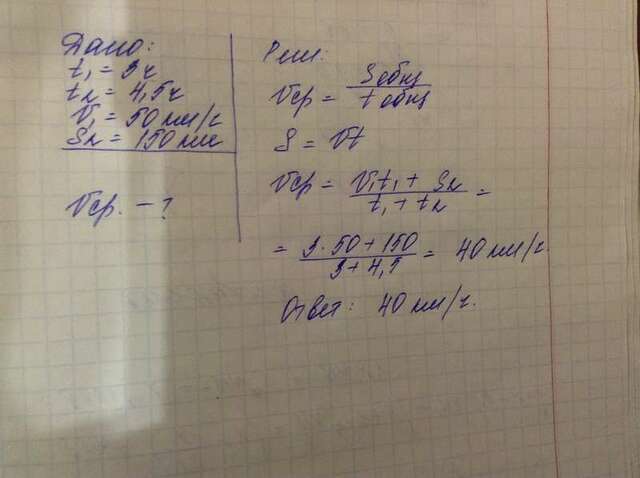 Дано:
t₁ = 3 ч
t₂ = 4,5 ч
V₁ = 50 км/ч
S₂ = 150 км
Vср. - ?
Реш:
Vср = Sобщ / tобщ
S = Vt
Vср = V₁t₁ + S₂ / t₁ + t₂ =
= 3 · 50 + 150 / 3 + 4,5 = 40 км/ч.
Ответ: 40 км/ч.